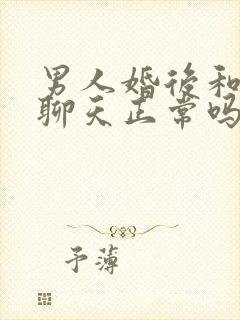 男人婚後和
聊天正常吗
予薄